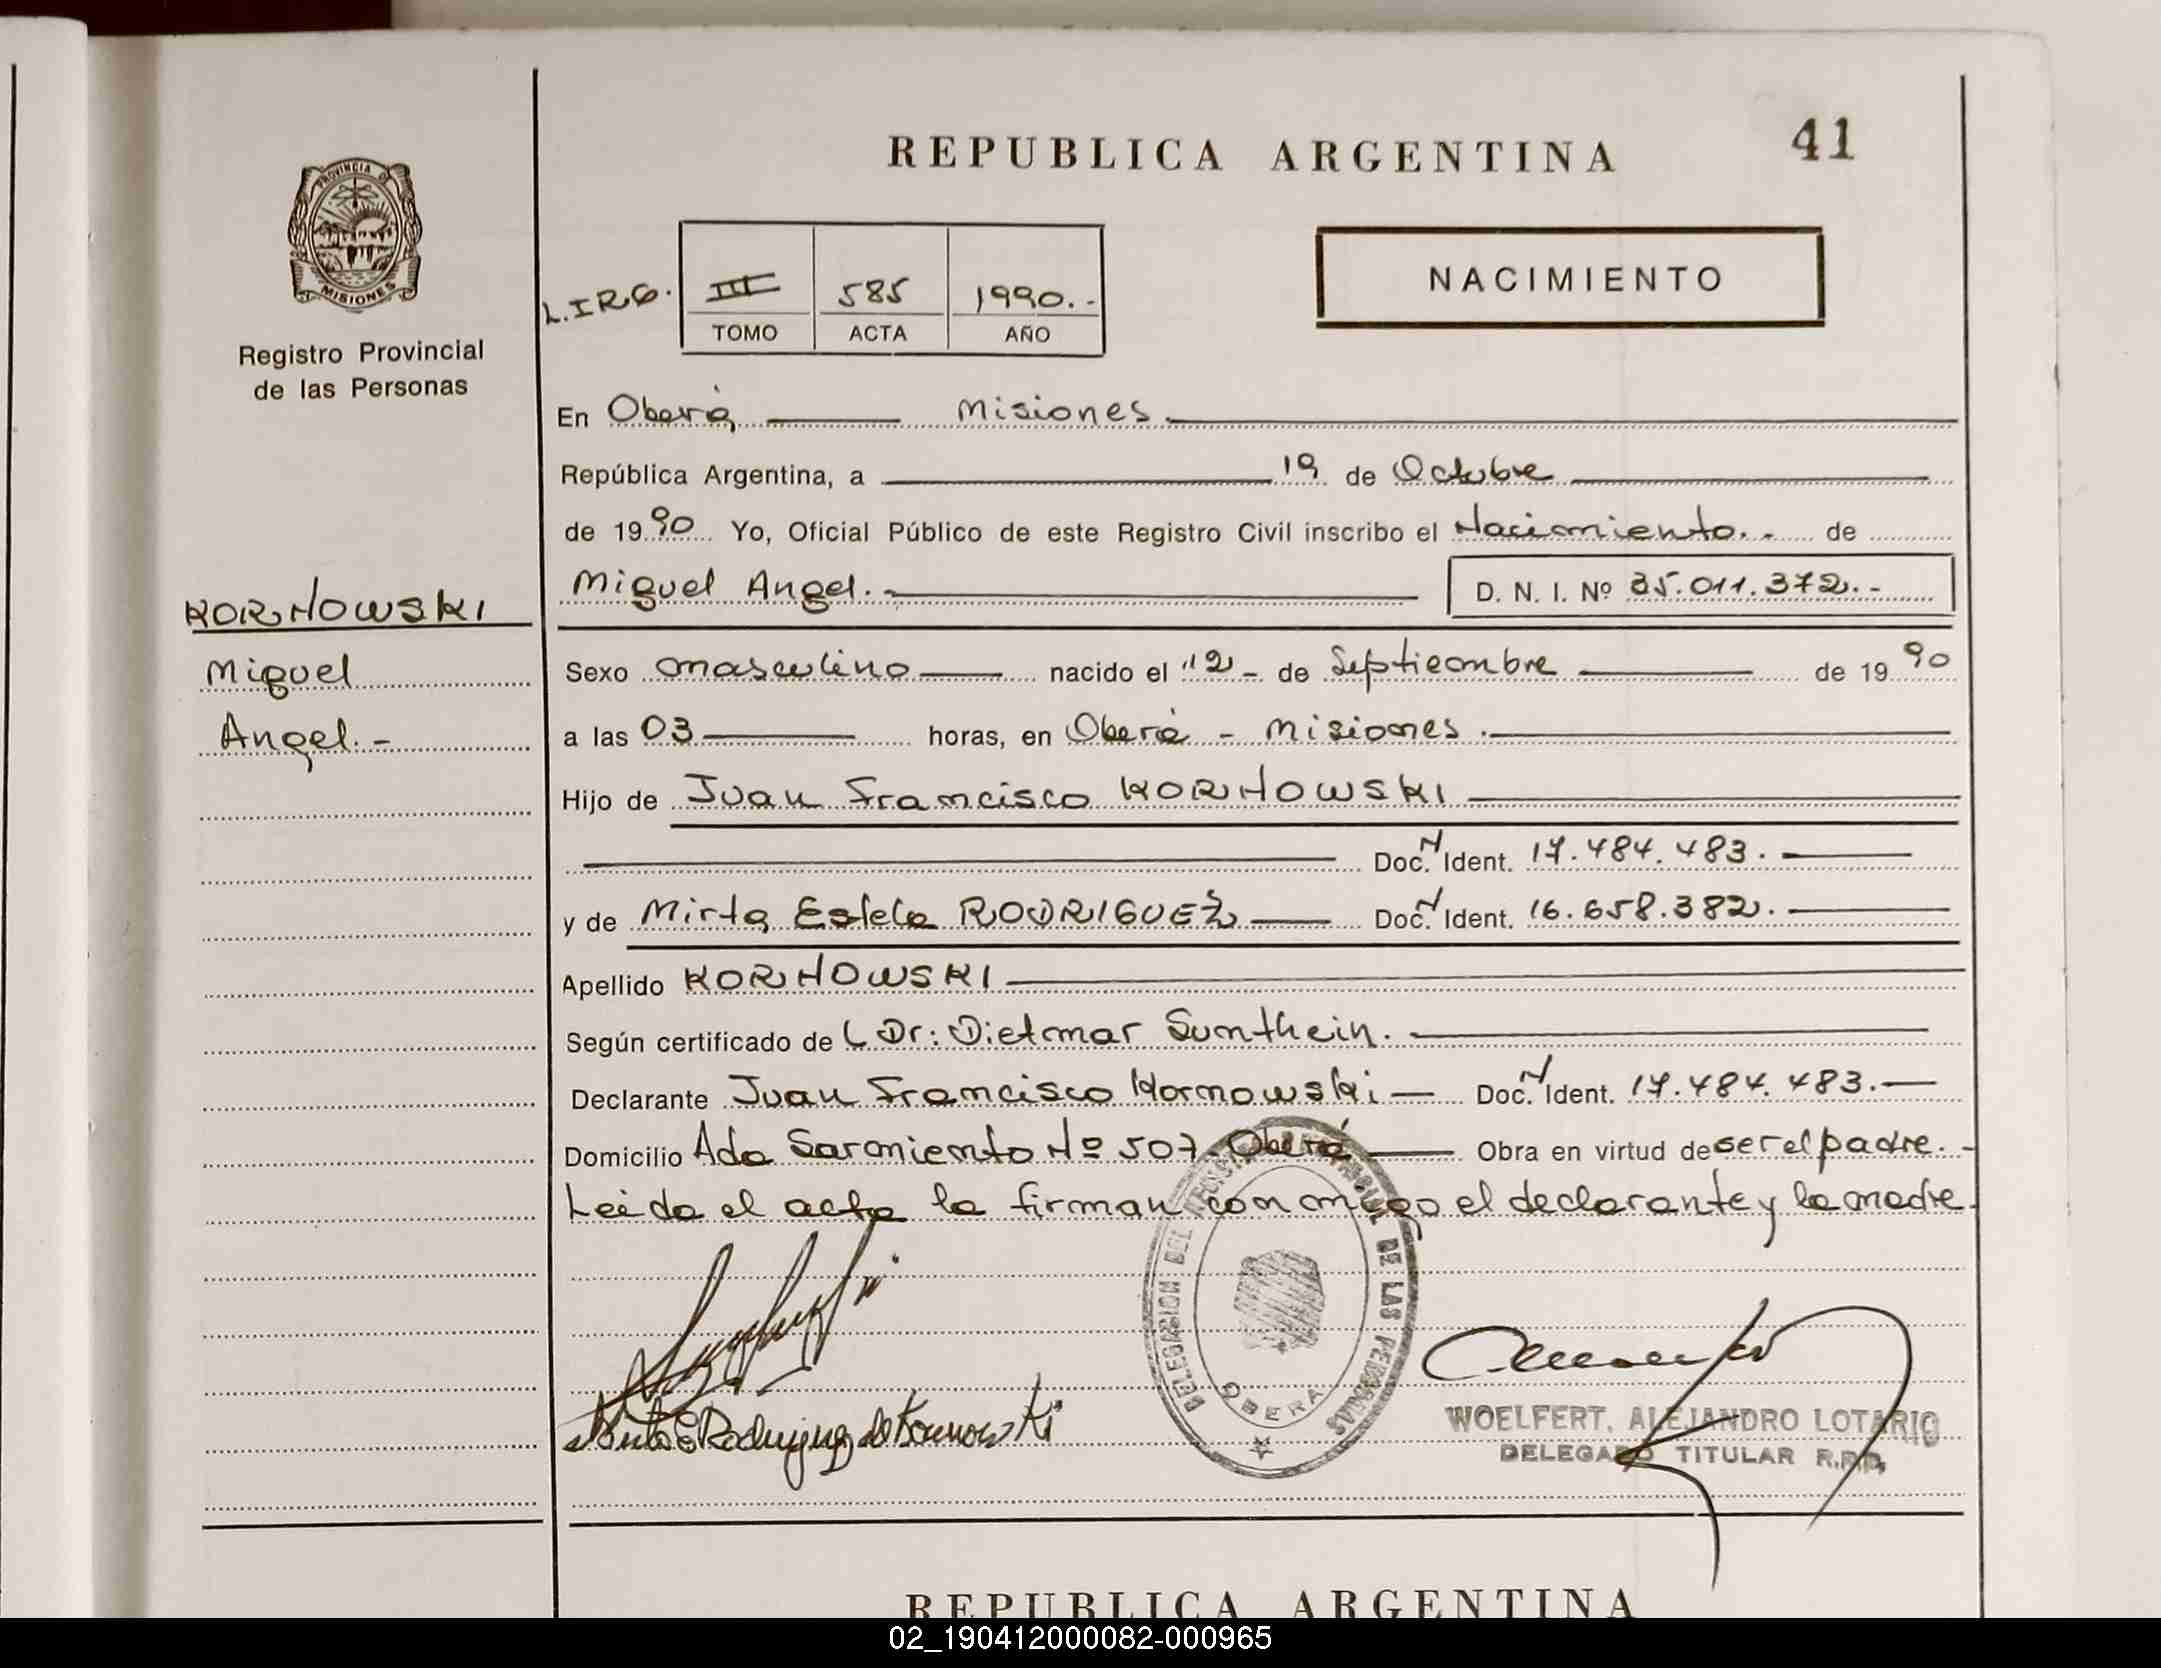 REPUBLICA ARGENTINA
41
PROVINCIA DE
MISIONES
Registro Provincial
de las Personas
NACIMIENTO
L.IRG. III 585 1990.-
TOMO ACTA AÑO
En Oberá Misiones.
República Argentina, a 19 de Octubre
de 1990 Yo, Oficial Público de este Registro Civil inscribo el Nacimiento.- de
Miguel Angel.- D. N. I. Nº 35.011.372.-
KORNOWSKI
Miguel
Angel.-
Sexo masculino nacido el 12- de Septiembre de 1990
a las 03 horas, en Oberá - Misiones.
Hijo de Juan Francisco KORNOWSKI
Doc. N Ident. 17.484.483.
y de Mirta Estela RODRIGUEZ Doc. N Ident. 16.658.382.
Apellido KORNOWSKI
Según certificado de L Dr: Dietmar Sumthein.
Declarante Juan Francisco Kornowski Doc. N Ident. 17.484.483.
Domicilio Avda Sarmiento Nº 507 Oberá Obra en virtud de ser el padre.-
Leida el acta la firman conmigo el declarante y la madre.
Mirta E Rodriguez de Kornowski
DELEGACION DEL REGISTRO PROVINCIAL DE LAS PERSONAS
OBERA
WOELFERT, ALEJANDRO LOTARIO
DELEGADO TITULAR R.P.P.
REPUBLICA ARGENTINA
02_190412000082-000965